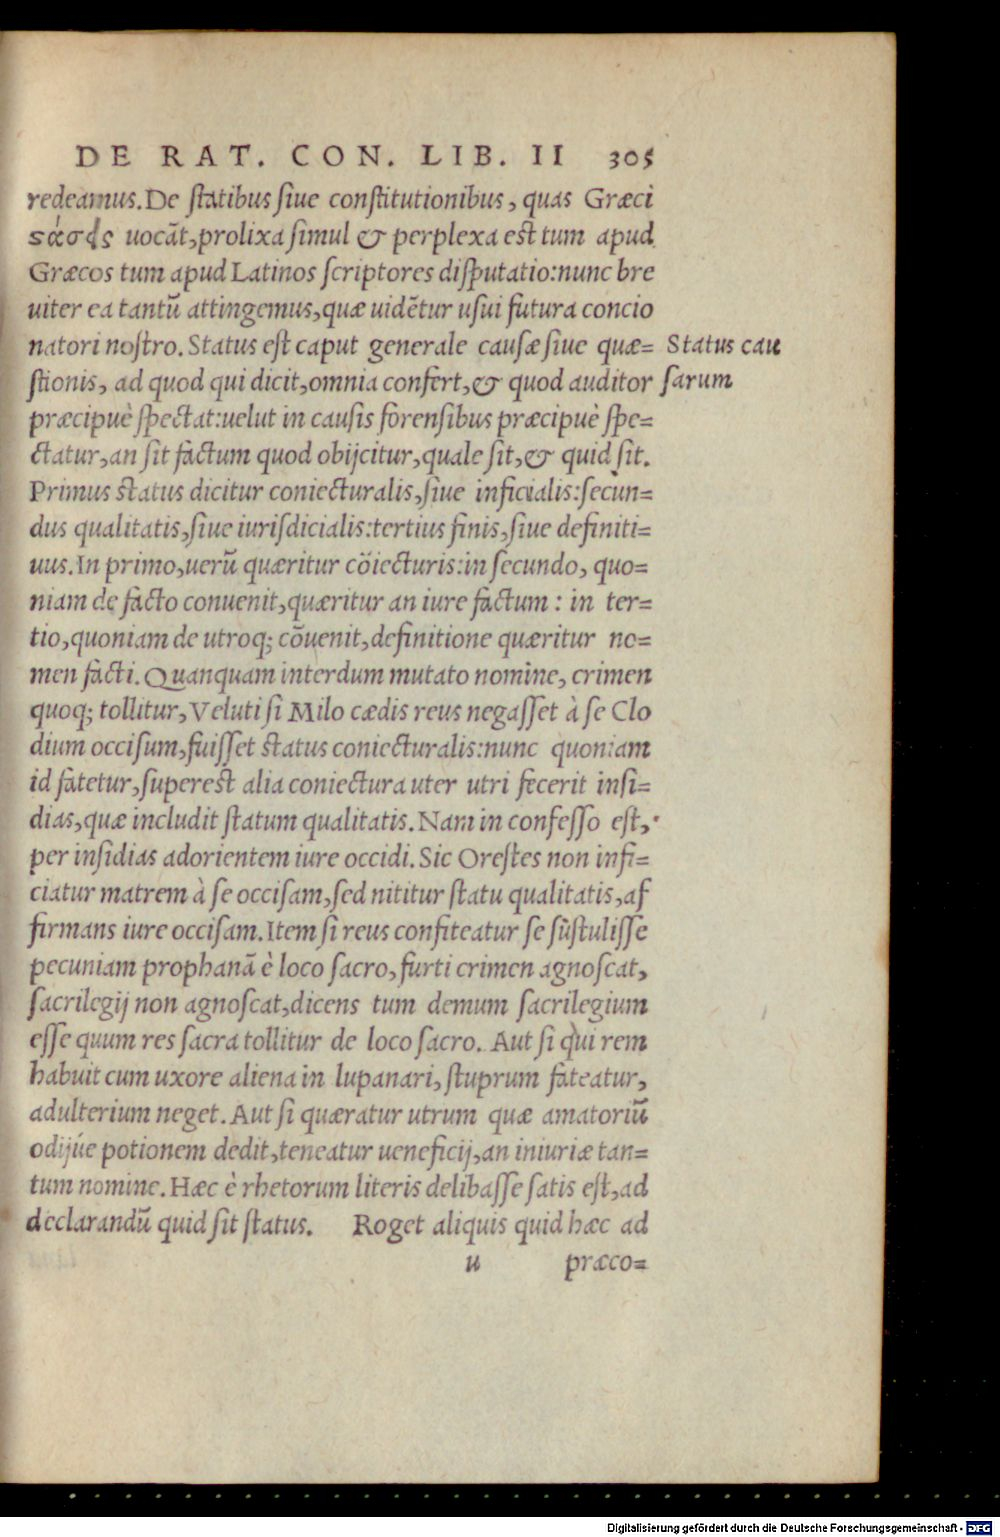 DE RAT. CON. LIB. II 305
redeamus. De ſtatibus ſiue conſtitutionibus, quas Græci
ϛάσεις uocãt, prolixa ſimul & perplexa eſt tum apud
Græcos tum apud Latinos ſcriptores diſputatio: nunc bre
uiter ea tantũ attingemus, quæ uidẽtur uſui futura concio
natori noſtro. Status eſt caput generale cauſæ ſiue quæ=
Status cau
ſtionis, ad quod qui dicit, omnia confert, & quod auditor
ſarum
præcipuè ſpectat: uelut in cauſis forenſibus præcipuè ſpe=
ctatur, an ſit factum quod obijcitur, quale ſit, & quid ſit.
Primus ſtatus dicitur coniecturalis, ſiue inficialis: ſecun=
dus qualitatis, ſiue iuriſdicialis: tertius finis, ſiue definiti=
uus. In primo, uerũ quæritur cõiecturis: in ſecundo, quo=
niam de facto conuenit, quæritur an iure factum : in ter=
tio, quoniam de utroq; cõuenit, definitione quæritur no=
men facti. Quanquam interdum mutato nomine, crimen
quoq; tollitur, Veluti ſi Milo cædis reus negaſſet à ſe Clo
dium occiſum, fuiſſet ſtatus coniecturalis: nunc quoniam
id fatetur, ſupereſt alia coniectura uter utri fecerit inſi=
dias, quæ includit ſtatum qualitatis. Nam in confeſſo eſt,
per inſidias adorientem iure occidi. Sic Oreſtes non infi=
ciatur matrem à ſe occiſam, ſed nititur ſtatu qualitatis, af
firmans iure occiſam. Item ſi reus confiteatur ſe ſuſtuliſſe
pecuniam prophanã è loco ſacro, furti crimen agnoſcat,
ſacrilegij non agnoſcat, dicens tum demum ſacrilegium
eſſe quum res ſacra tollitur de loco ſacro. Aut ſi qui rem
habuit cum uxore aliena in lupanari, ſtuprum fateatur,
adulterium neget. Aut ſi quæratur utrum quæ amatoriũ
odijúe potionem dedit, teneatur ueneficij, an iniuriæ tan=
tum nomine. Hæc è rhetorum literis delibaſſe ſatis eſt, ad
declarandũ quid ſit ſtatus. Roget aliquis quid hæc ad
u præco=
Digitalisierung gefördert durch die Deutsche Forschungsgemeinschaft - DFG